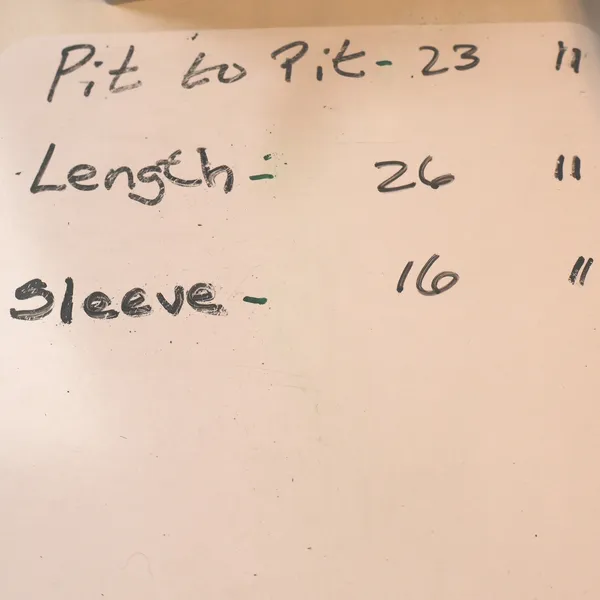 Pit to Pit- 23 "
Length - 26 "
Sleeve - 16 "